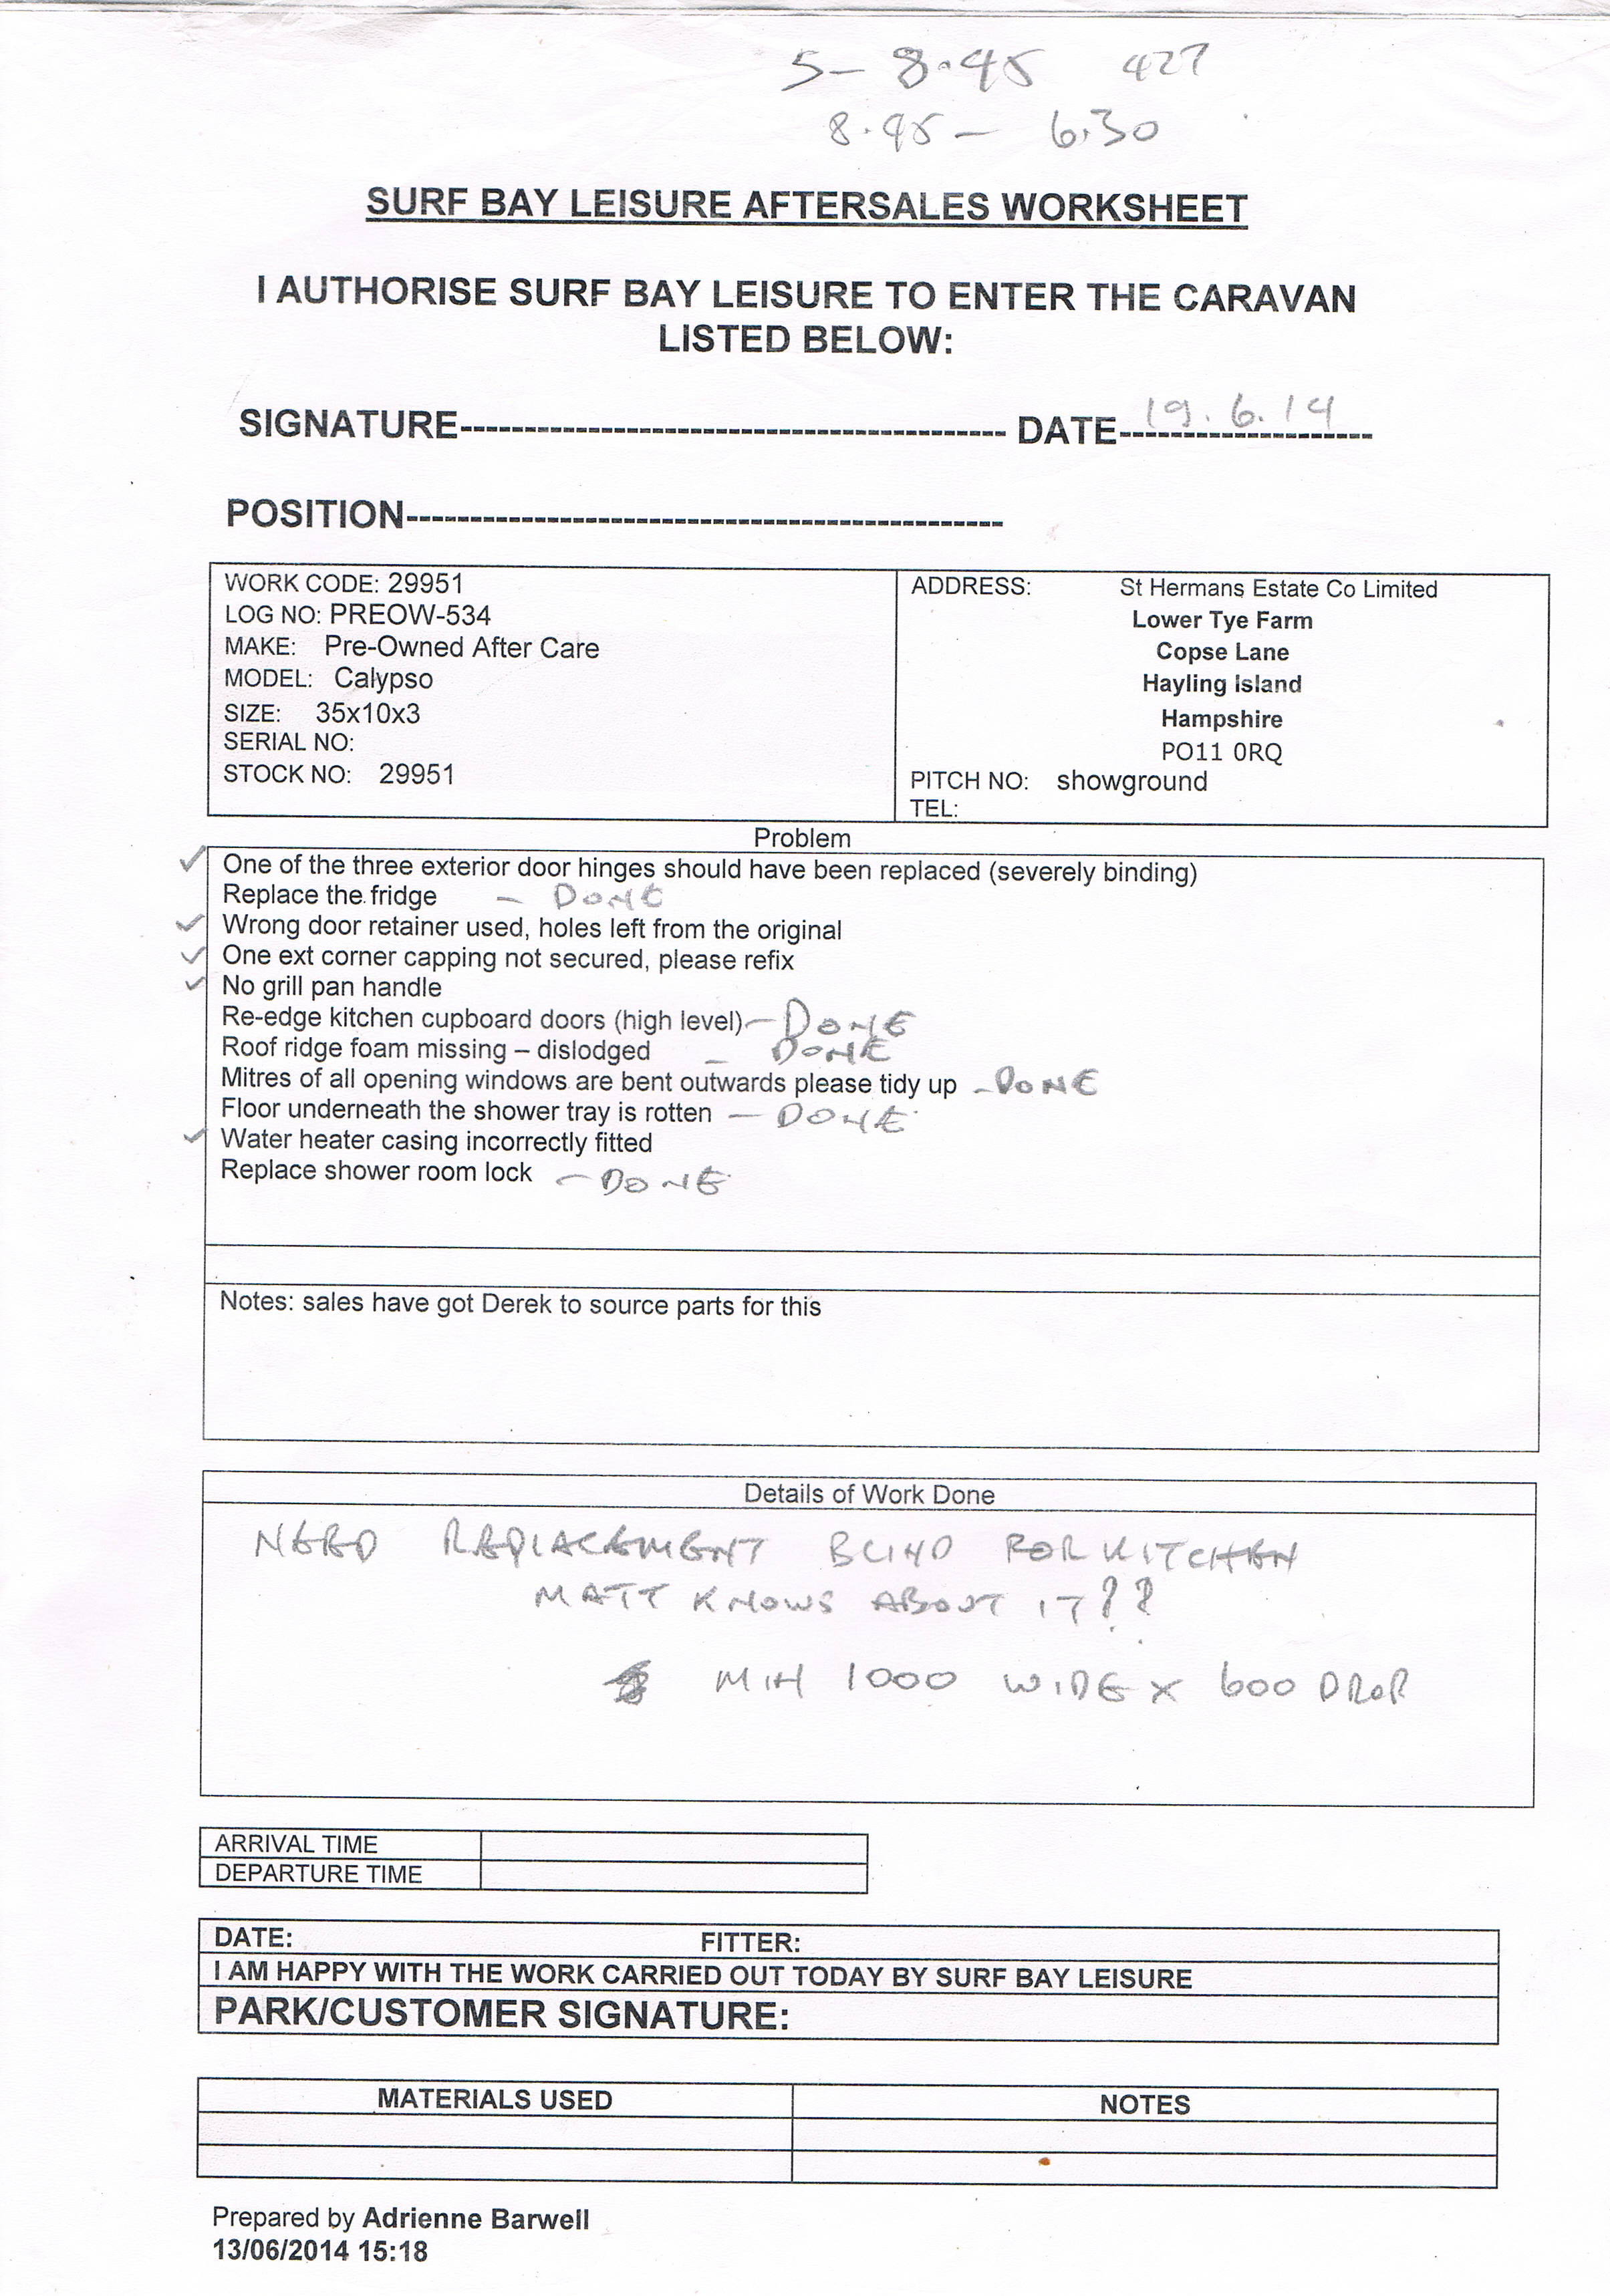 5- 8.45 427
8.45- 6.30
SURF BAY LEISURE AFTERSALES WORKSHEET
I AUTHORISE SURF BAY LEISURE TO ENTER THE CARAVAN
LISTED BELOW:
SIGNATURE------------------------------------------- DATE-------------------- 19.6.14
POSITION-----------------------------------------------
WORK CODE: 29951
LOG NO: PREOW-534
MAKE: Pre-Owned After Care
MODEL: Calypso
SIZE: 35x10x3
SERIAL NO:
STOCK NO: 29951
ADDRESS: St Hermans Estate Co Limited
Lower Tye Farm
Copse Lane
Hayling Island
Hampshire
PO11 0RQ
PITCH NO: showground
TEL:
Problem
✓ One of the three exterior door hinges should have been replaced (severely binding)
Replace the fridge - DONE
✓ Wrong door retainer used, holes left from the original
✓ One ext corner capping not secured, please refix
✓ No grill pan handle
Re-edge kitchen cupboard doors (high level) - DONE
Roof ridge foam missing – dislodged - DONE
Mitres of all opening windows are bent outwards please tidy up - DONE
Floor underneath the shower tray is rotten - DONE
✓ Water heater casing incorrectly fitted
Replace shower room lock - DONE
Notes: sales have got Derek to source parts for this
Details of Work Done
NEED REPLACEMENT BLIND FOR KITCHEN
MATT KNOWS ABOUT IT??
MIN 1000 WIDE X 600 DROP
ARRIVAL TIME
DEPARTURE TIME
DATE: FITTER:
I AM HAPPY WITH THE WORK CARRIED OUT TODAY BY SURF BAY LEISURE
PARK/CUSTOMER SIGNATURE:
MATERIALS USED NOTES
Prepared by Adrienne Barwell
13/06/2014 15:18